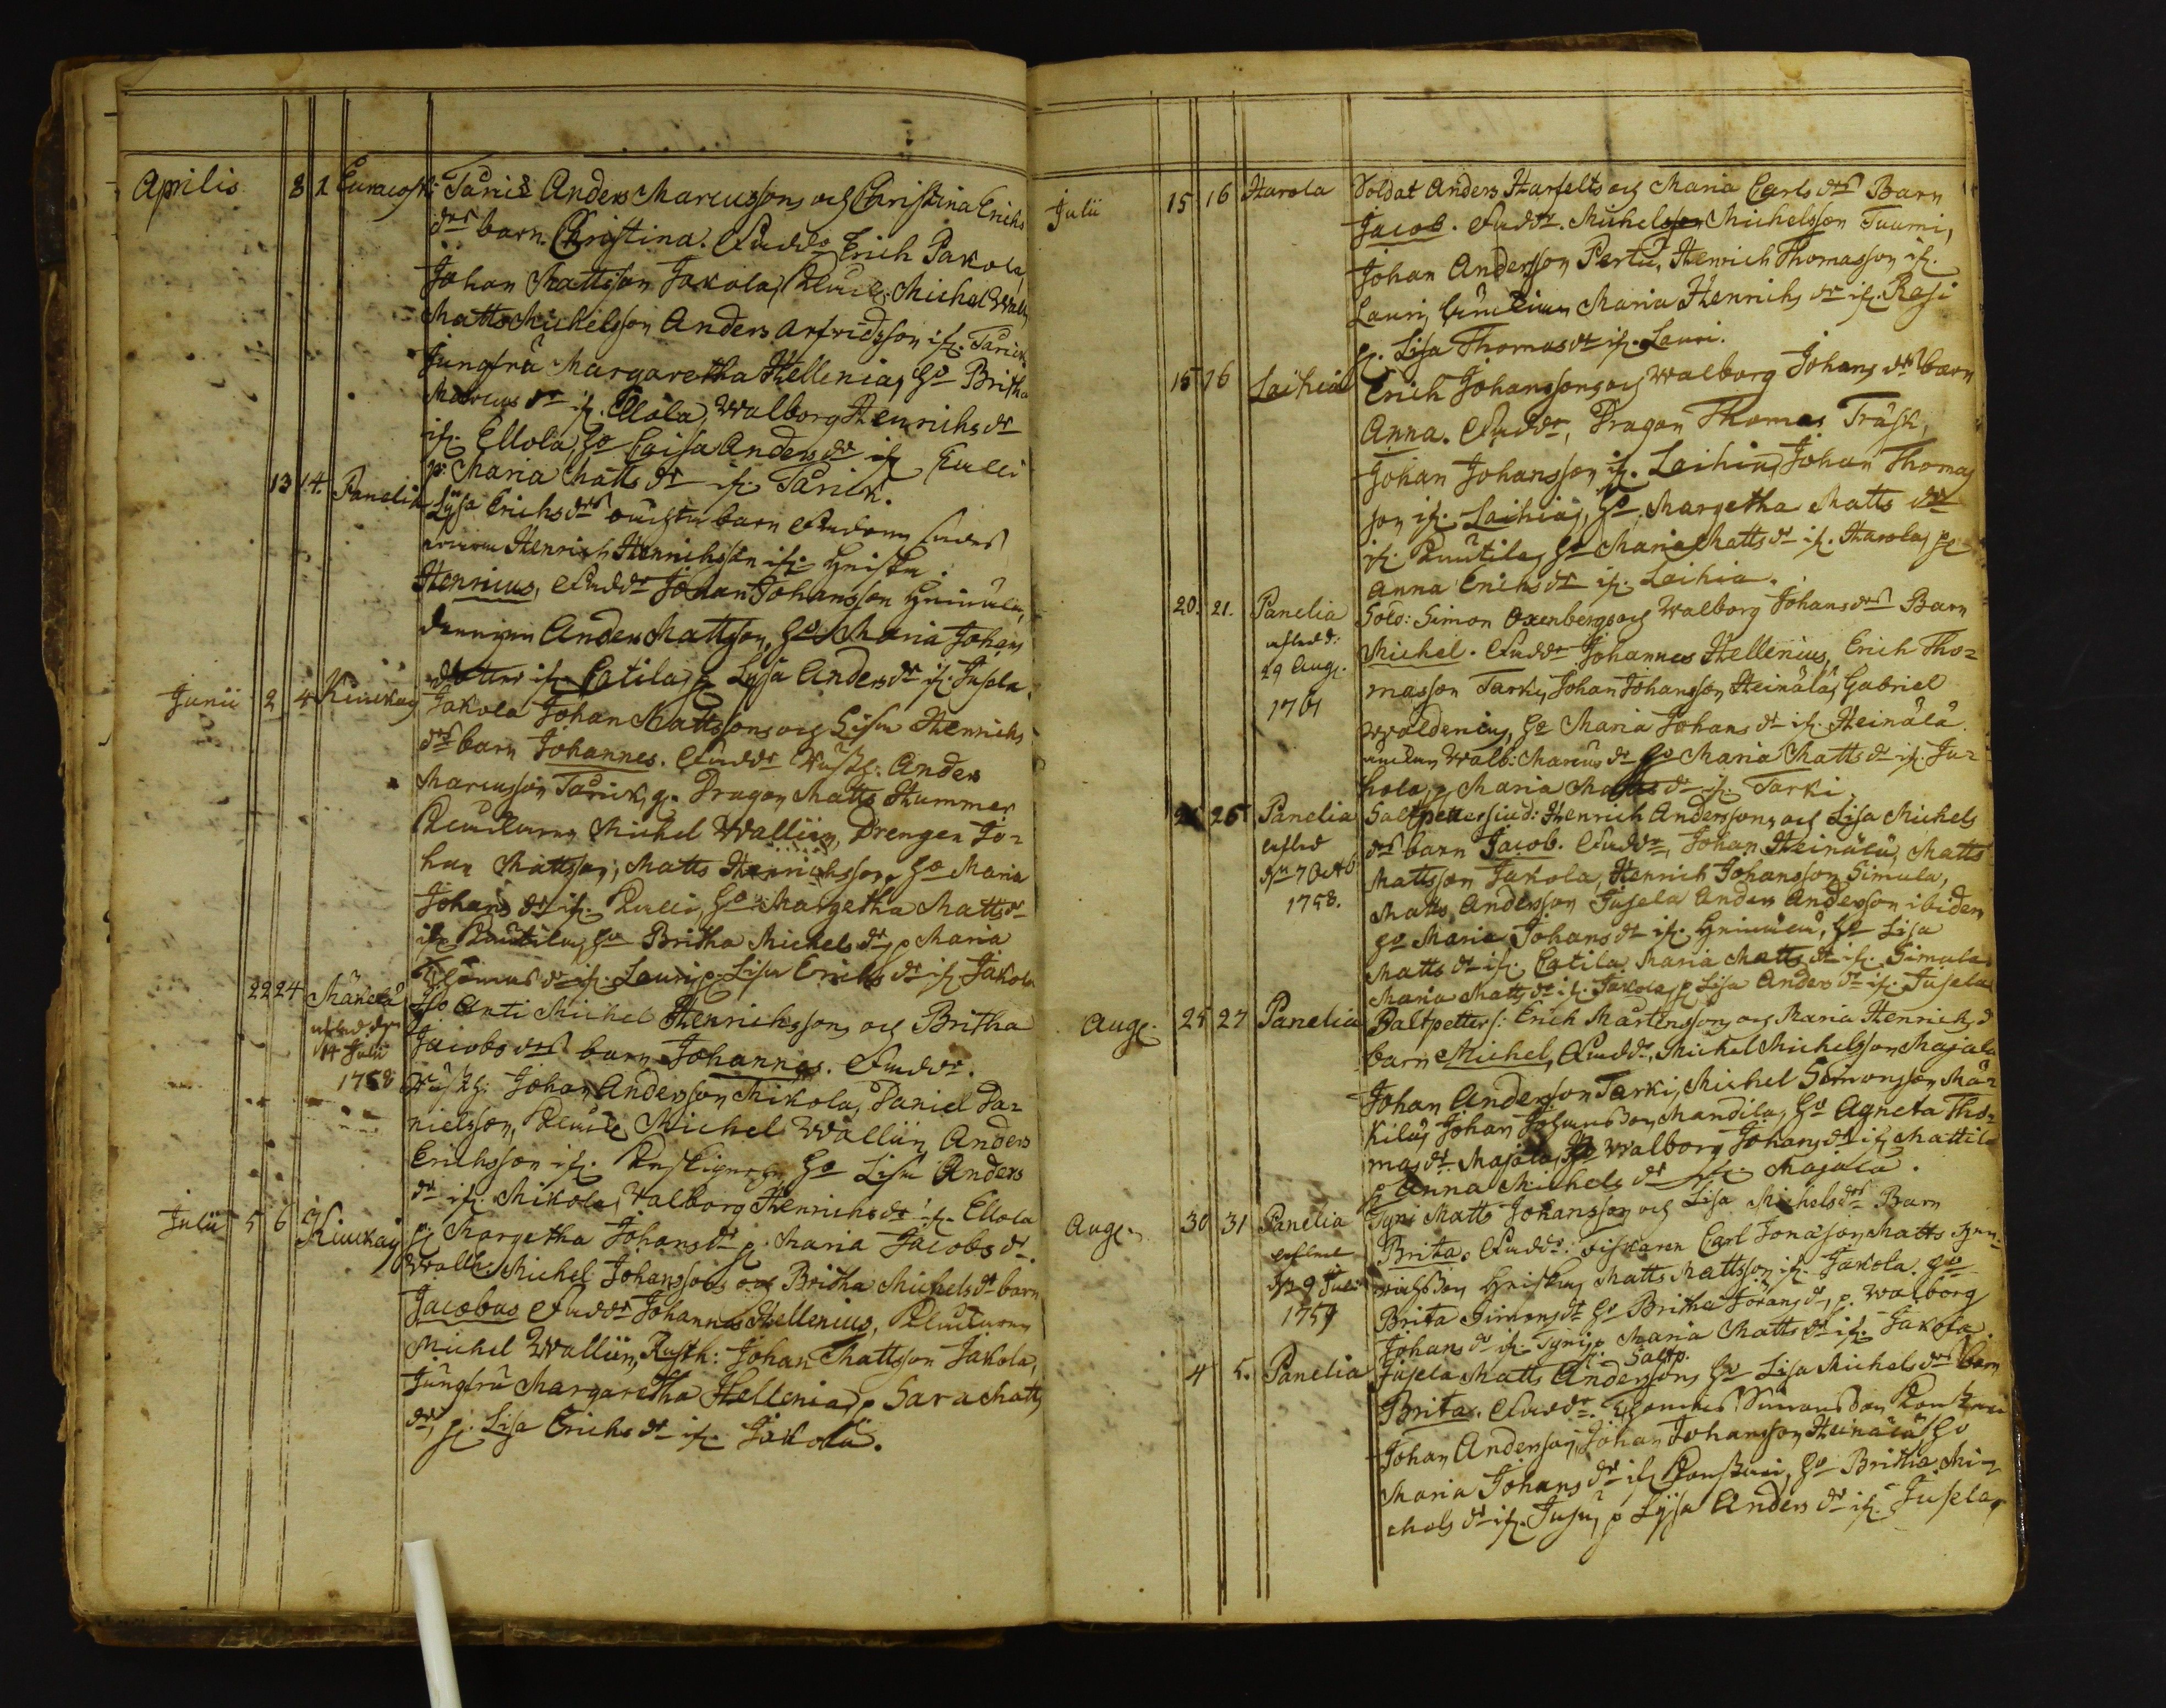 Aprilis 8 1 Euracosk: Tarich Anders Marcusson och Christina Erichs
dr barn. Christina. Faddr Erich Pakola,
Johan Mattsson Jakola, Michel Wall
Matts Michelsson Anders Arfvidsson ifr. Tarick
Jungfru Margaretha Hellenia, ho Britha
Marcus dr ifr. Ellola, Walborg Henrichs dr
ifr. Ellola, ho Caisa Anders dr ifr
p: Maria Matts dr ifr. Tarick.
13 14. Panelia Lijsa Erichs drs barn
Henrich Henrichsson ifr.
Henricus, Faddr Johan Johansson
drengen Anders Mattsson, ho Maria Johans
dotter ifr. Catila, p Lijsa Anders dr ifr. Jusela.
Junii 2 4 Kiuckais Jakola Johan Mattssons och Lisa Henrichs
drs barn Johannes. Faddr Rusth: Anders
Marcusson Tarick, Dragon Matts Hummer
Michel Walliin, Drengen Jo=
han Mattsson, Matts Henrichsson, ho Maria
Johans dr ifr. ho Margetha Matts dr
ifr. ho Britha Michels dr, p Maria
Thomas dr ifr. Lauri, p. Lisa Erichs dr ifr Jakola
22 24 Mänelä Iso Anti Michel Henrichssons och Britha
14 Julii Jacobs drs barn Johannes. Faddr.
1758 Rusth: Johan Andersson Mikola, Daniel Da=
nielsson, Michel Walliin, Anders
Erichsson ifr. ho Lisa Anders
dr ifr. Mikola, Valborg Henrichs dr ifr. Ellola
p: Margetha Johans dr p. Maria Jacobs dr
Julii 5 6 Kiuckais Michel Johanssons och Britha Michels dr barn
Jacobus Faddr Johannes Hellenius,
Michel Walliin, Rusth: Johan Mattsson Jakola,
Jungfru Margaretha Hellenia, p Sara Matts
dr, p. Lisa Erichs dr ifr Jakola.
Julii 15 16 Harola Soldat Anders Harfelts och Maria Carls drs Barn
Jacob. Faddr. Michelsson Michelsson Tuumi,
Johan Andersson Pertu, Henrich Thomasson ifr.
Lauri, Maria Henrichs dr ifr. Rasi
p. Lisa Thomas dr ifr. Lauri.
15 16 Laihia Erich Johanssons och Walborg Johans drs barn
Anna. Faddr, Dragon Thomas Träsk,
Johan Johansson ifr. Laihia, Johan Thomas
son ifr. Laihia, ho Margetha Matts dr
ifr. ho Maria Matts dr ifr. Harola, p
Anna Erichs dr ifr. Laihia.
20. 21. Panelia Sold: Simon Oxenbergs och Walborg Johans drs Barn
29 Aug. Michel. Faddr Johannes Hellenius, Erich Tho=
1761 masson Tarki, Johan Johansson Heinälä, Gabriel
Woldenius, ho Maria Johans dr ifr. Heinälä
Walb: Marcus dr ho Maria Matts dr ifr. Ju=
hola, p Maria Matts dr ifr. Tarki
25 Panelia Saltpettersiud: Henrich Anderssons och Lisa Michels
drs barn Jacob. Faddr, Johan Heinälä, Matts
7 Octob Mattsson Jakola, Henrich Johansson Simula,
1758. Matts Andersson Jusela Anders Andersson ibidem
ho Maria Johans dr ifr. Heinälä, ho Lisa
Matts dr ifr. Catila Maria Matts dr ifr. Simula
Maria Matts dr ifr. Jakola, p Lisa Anders dr ifr. Jusela
Aug. 25 27 Panelia Saltpetters: Erich Mårtenssons och Maria Henrichs d
barn Michel, Faddr, Michel Michelsson Majala
Johan Andersson Tarki, Michel Simonsson Mä=
kilä, Johan Johansson Mandila, ho Agneta Tho=
mas dr. Majala, ho Walborg Johans dr ifr. Mattila
p Anna Michels dr ifr. Majala.
Aug. 30 31 Panelia Tyni Matts Johansson och Lisa Michels drs Barn
Brita. Faddr: Carl Jonasson Matts Hen=
9 Julii richsson Matts Mattsson ifr. Jakola. ho
1759 Brita Simons dr ho Britha Jörans dr, p. Walborg
Johans dr ifr. Tyni, p. Maria Matts dr ifr. Jakola
Saltp.
4 5. Panelia Jusela Matts Anderssons ho Lisa Michels drs barn
Brita. Faddr. Thomas Simonsson
Johan Andersson, Johan Johansson Heinälä, ho
Maria Johans dr ifr ho Britha Mi=
chels dr ifr. Jusu, p Lijsa Anders dr ifr. Jusela,